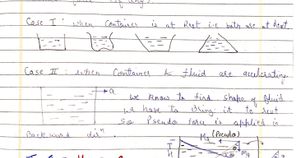 Case I : when Container is at Rest i.e both are at Rest.
Case II : when Container & fluid are accelerating
→ a
we know to find shape of fluid
we have to bring it to rest
so Pseudo force is applied in
Backward dirⁿ.
(Pseudo)